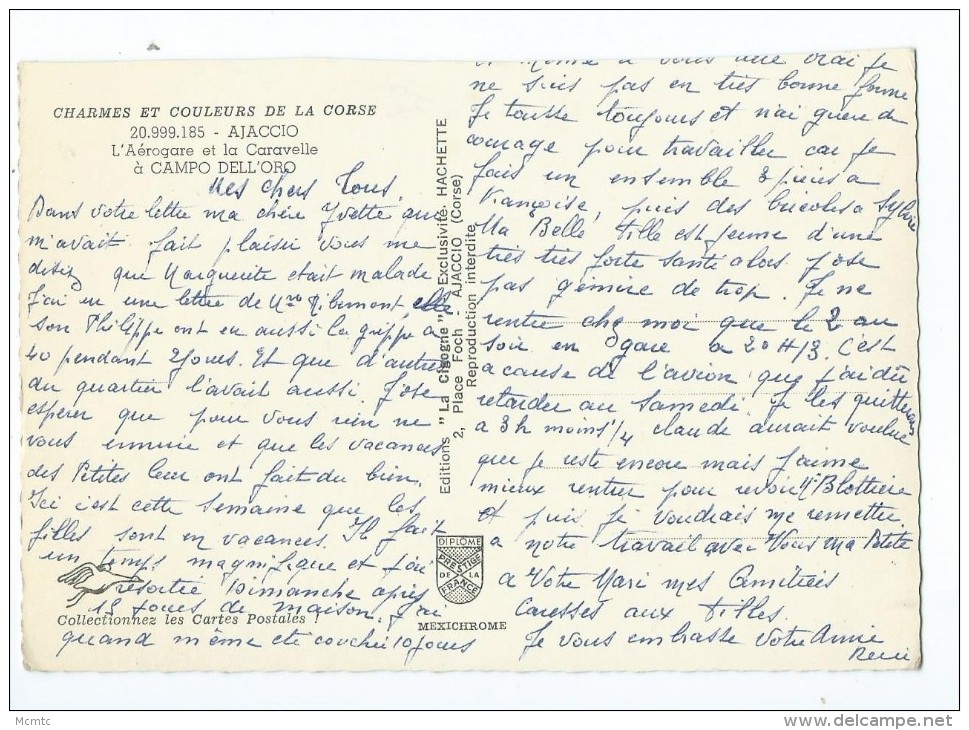 CHARMES ET COULEURS DE LA CORSE
20.999.185 - AJACCIO
L'Aérogare et la Caravelle
à CAMPO DELL'ORO
Mes chers Tous,
Dans votre lettre ma chère Yvette qui
m'avait fait plaisir vous me
disiez que Marguerite etait malade
J'ai eu une lettre de Mme Ribemont, elle
son Philippe ont eu aussi la grippe a
40 pendant 2 jours. Et que d'autres
du quartier l'avait aussi. J'ose
espérer que pour vous rien ne
vous ennuie et que les vacances
des Petites leur ont fait du bien.
Ici c'est cette semaine que les
filles sont en vacances. Il fait
un temps magnifique et j'ai
resortie Dimanche après
18 jours de maison. J'ai
quand même eté couchée 10 jours
Collectionnez les Cartes Postales !
Editions "La Cigogne" Exclusivité HACHETTE
2, Place Foch - AJACCIO (Corse)
Reproduction interdite
DIPLOME
PRESTIGE
DE LA
FRANCE
MEXICHROME
a vous une vrai je
ne suis pas en très bonne forme
Je tousse toujours et n'ai guère de
courage pour travailler car je
fais un ensemble 3 pièces a
Françoise, puis des bricoles a Sylvie
Ma Belle Fille est jeune d'une
très très forte santé alors j'ose
pas gémire de trop. Je ne
rentre chez moi que le 2 au
soir en gare a 20H13. C'est
a cause de l'avion que j'ai dû
retarder au Samedi. Je les quitterais
a 3h moins 1/4 Claude aurait voulue
que je reste encore mais j'aime
mieux rentrer pour revoir Blottiere
Et puis je voudrais me remettre
a notre travail avec Vous ma Petite
a Votre Mari mes Amitiées
Caresses aux Filles.
Je vous embrasse votre Amie
Mcmtc
delcampe.net